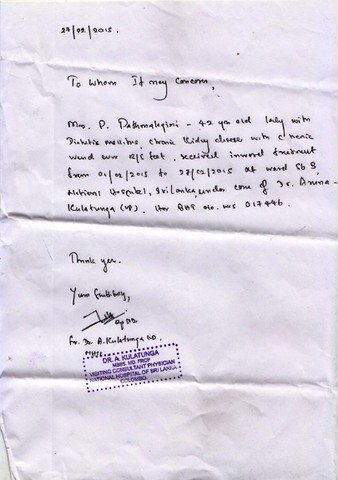 27/02/2015.
To Whom It may Concern,
Mrs. P. Pathmalogini - 42 yrs old lady with
Diabetic mellitus, chronic kidney disease with chronic
wound over R/S foot, received inward treatment
from 01/02/2015 to 27/02/2015 at ward 56 B,
National Hospital, Sri Lanka, under care of Dr. Aruna-
Kulatunga (VP). Her BHT No. was 017446.
Thank you.
Yours faithfully,
For. Dr. A. Kulatunga
DR. A. KULATUNGA
MBBS. MD. FRCP
VISITING CONSULTANT PHYSICIAN
NATIONAL HOSPITAL OF SRI LANKA
COLOMBO